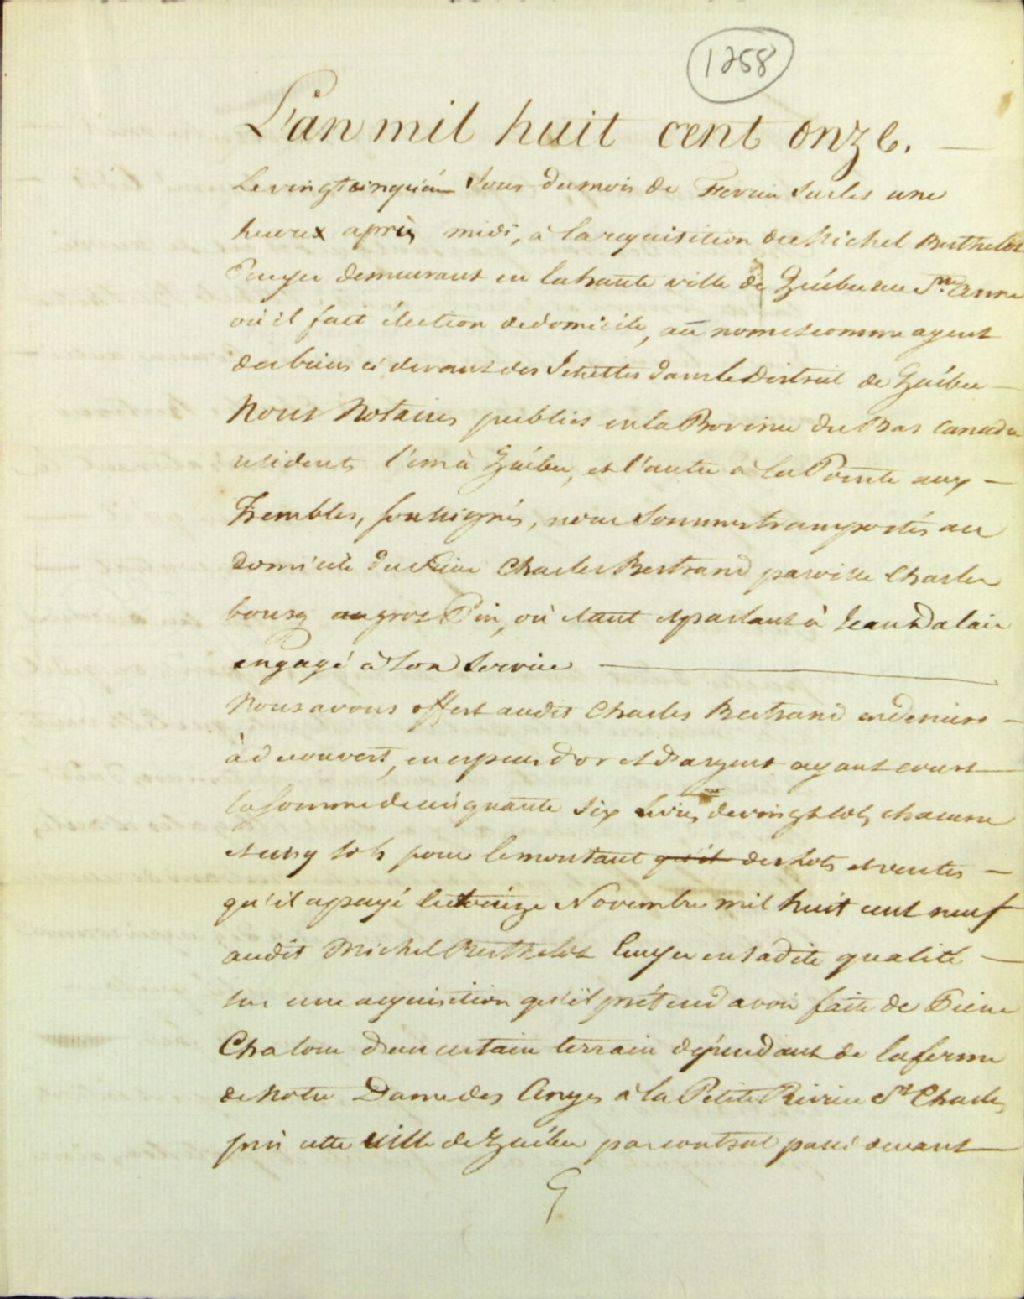 1258
L'an mil huit cent onze. —
Le vingtcinquiém Jour du mois de Fevrier Sur les une
heurex après midi, à la requisition de Michel Berthelot
Ecuyer demeurant en la haute ville de Québec rue Ste Anne
où il fait élection de domicile, au nom et comme agent
des biens ci devant des Jesuittes dans le District de Québec —
Nous Notaires publics en la Province du Bas Canada
residents l'un à Québec, et l'autre à la Pointe aux —
Trembles, soussignés, nous Sommes transportés au
domicile du Sieur Charles Bertrand paroisse Charles
bourg au gros Pin, où étant et parlant à Jean Dalaire
engagé à Son Service —
Nous avons offert audit Charles Bertrand en deniers —
à decouvert, en especes d'or et d'argent ayant cours —
la somme de cinquante Six livres de vingt sols chacune
et cinq sols pour le montant qu'il des lots et ventes —
qu'il a payé le treize Novembre mil huit cent neuf
audit Michel Berthelot Ecuyer en sadite qualité —
sur une acquisition qu'il prétend avoir faite de Pierre
Chalou d'un certain terrain dépendant de la ferme
de Notre Dame des Anges à la Petite Riviere St Charles
près cette ville de Québec par contrat passé devant —